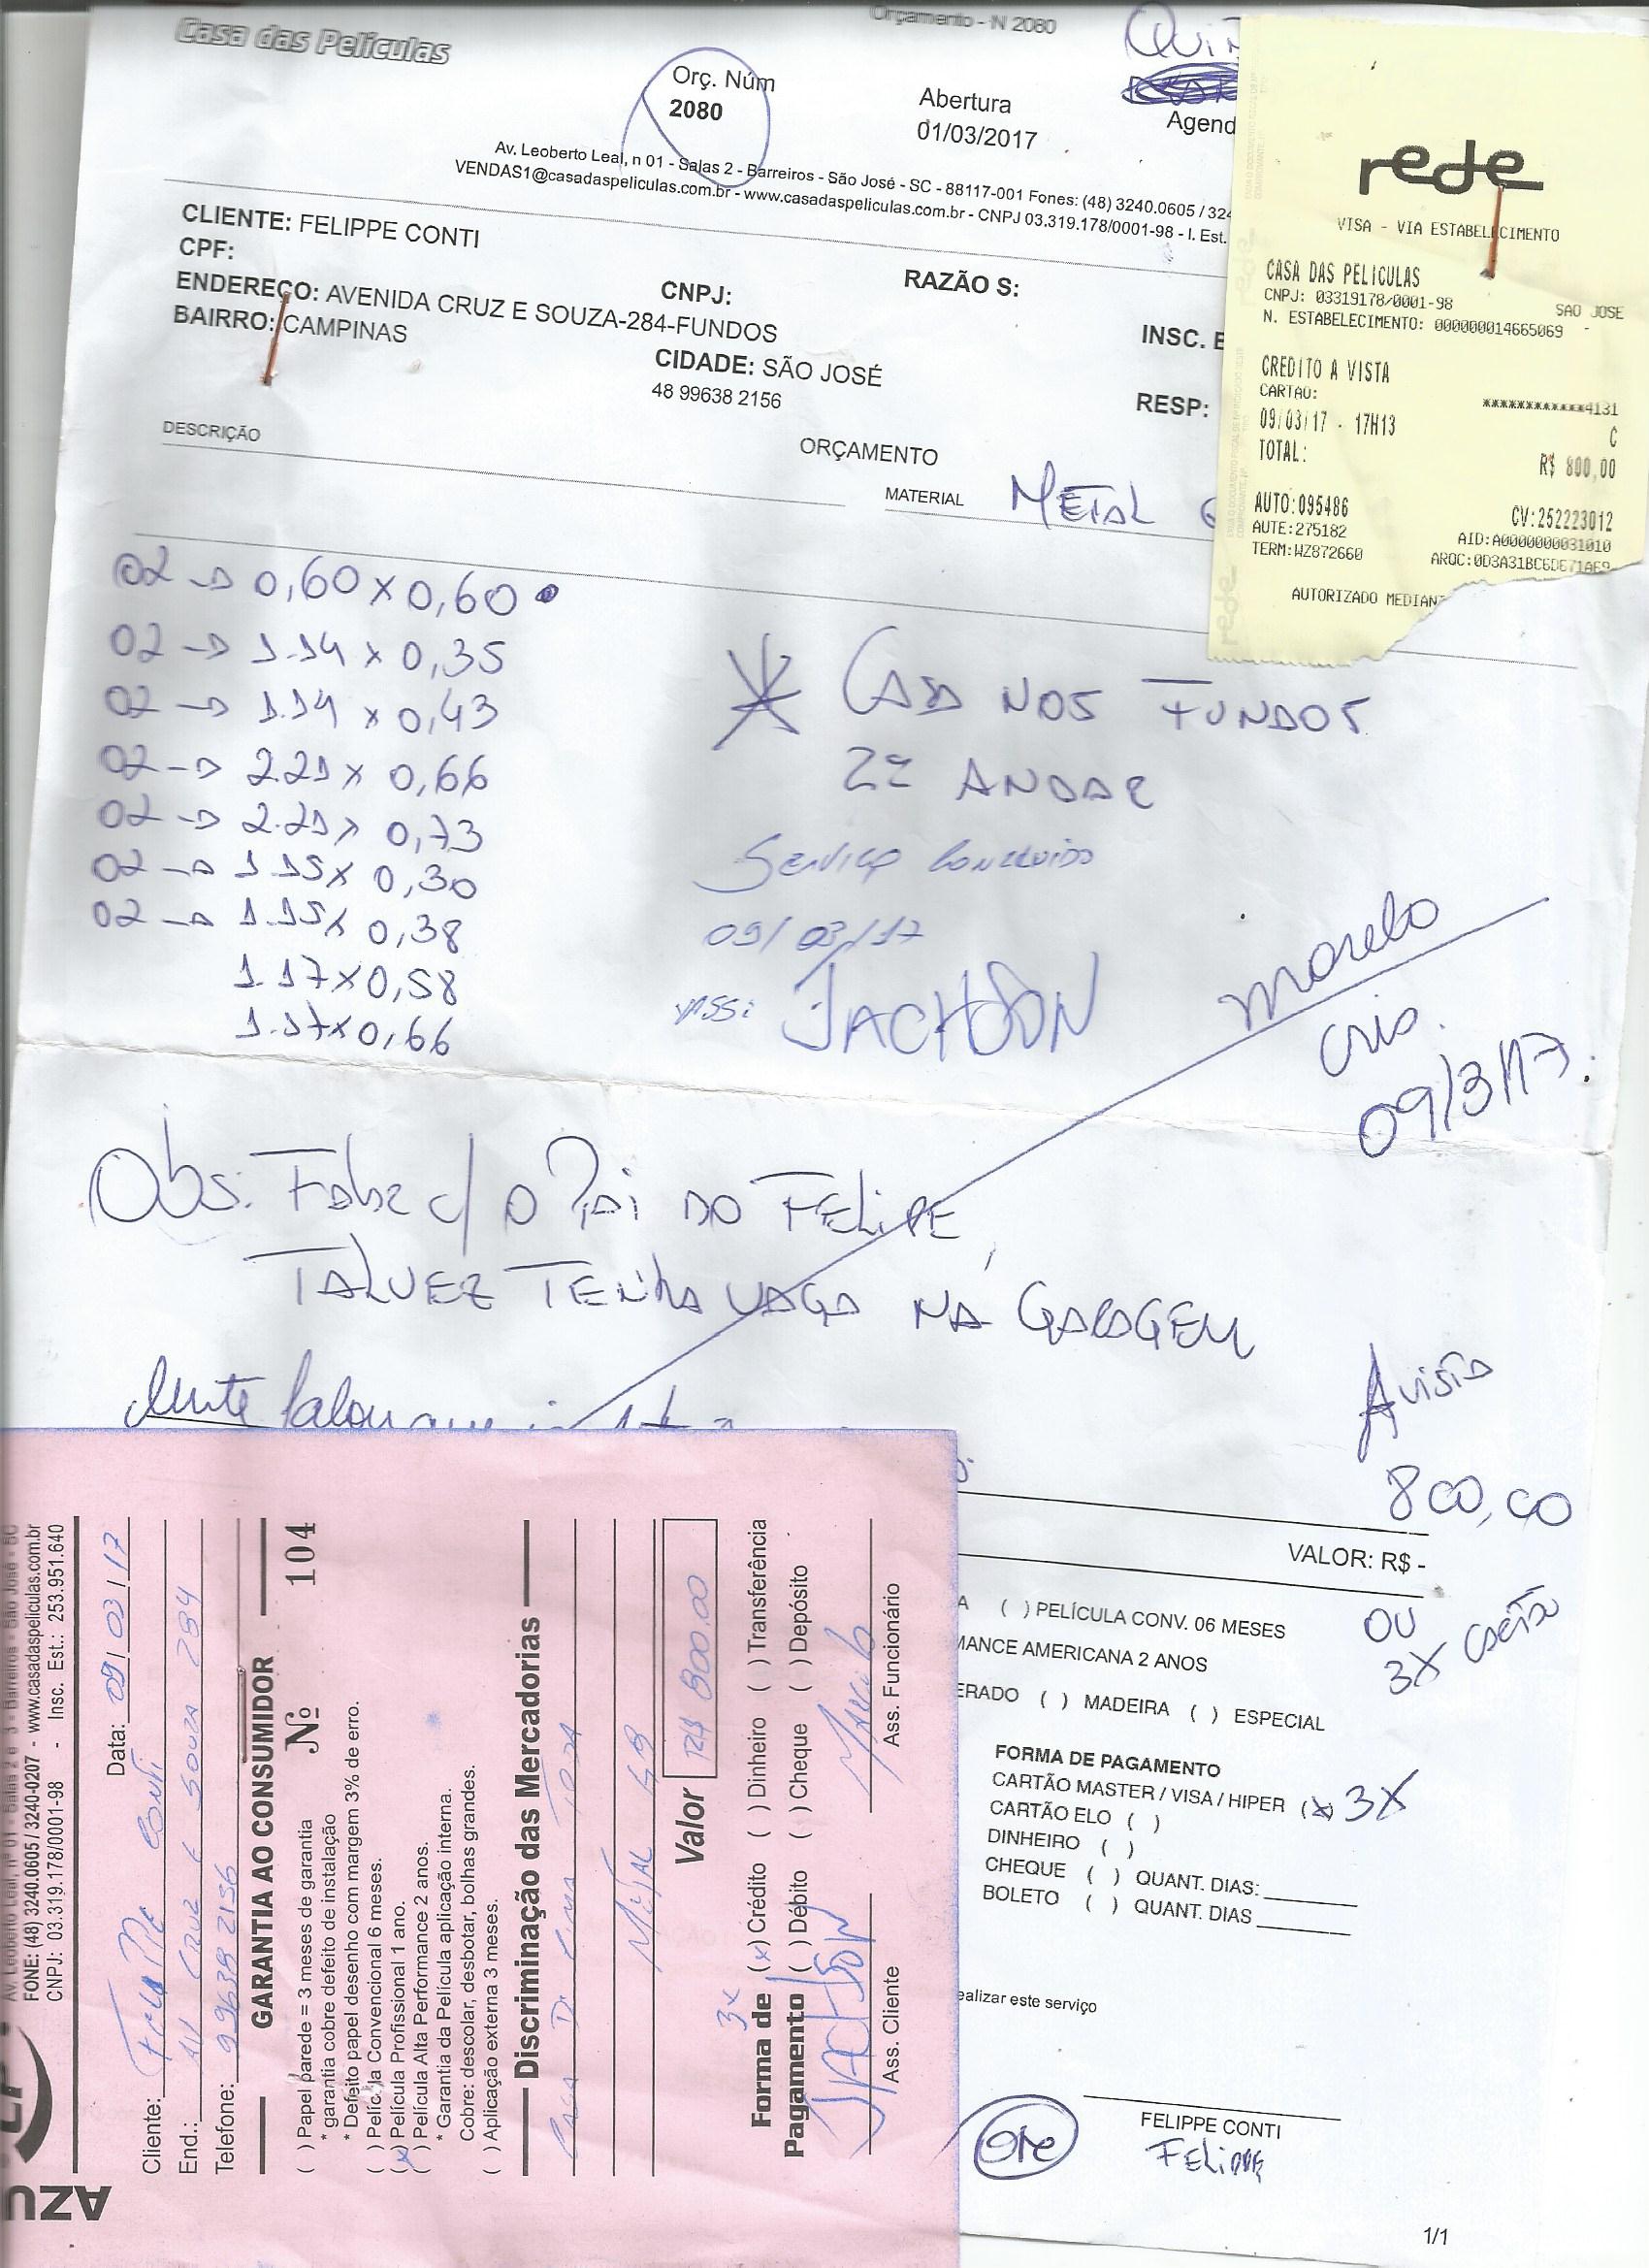 Casa das Películas
Orçamento - N 2080
Orç. Núm
2080
Abertura
01/03/2017
Agend
Av. Leoberto Leal, n 01 - Salas 2 - Barreiros - São José - SC - 88117-001 Fones: (48) 3240.0605 / 324
VENDAS1@casadaspeliculas.com.br - www.casadaspeliculas.com.br - CNPJ 03.319.178/0001-98 - I. Est.
CLIENTE: FELIPPE CONTI
CPF:
CNPJ:
RAZÃO S:
ENDEREÇO: AVENIDA CRUZ E SOUZA-284-FUNDOS
BAIRRO: CAMPINAS
CIDADE: SÃO JOSÉ
48 99638 2156
INSC. E
RESP:
DESCRIÇÃO
ORÇAMENTO
MATERIAL METAL
rede
VISA - VIA ESTABELECIMENTO
CASA DAS PELICULAS
CNPJ: 03319178/0001-98 SAO JOSE
N. ESTABELECIMENTO: 000000014665069 -
CREDITO A VISTA
CARTAO: ************4131
09/03/17 - 17H13 C
TOTAL: R$ 800,00
AUTO:095486 CV:252223012
AUTE:275182 AID:A0000000031010
TERM:WZ872660 ARQC:0D3A31BC6DE71A69
AUTORIZADO MEDIAN
02 → 0,60 x 0,60
02 → 1.14 x 0,35
02 → 1.14 x 0,43
02 → 2.21 x 0,66
02 → 2.21 x 0,73
02 → 1.15 x 0,30
02 → 1.15 x 0,38
1.17 x 0,58
1.17 x 0,66
* CASA NOS FUNDOS
2º ANDAR
Serviço Concluido
09/03/17
ASS: JACKSON
cris.
09/3/17
Obs: FALAR c/ O PAI DO FELIPE,
TALVEZ TENHA VAGA NA GARAGEM
A vista
800,00
VALOR: R$ -
ou
3X cartão
A ( ) PELÍCULA CONV. 06 MESES
MANCE AMERICANA 2 ANOS
ERADO ( ) MADEIRA ( ) ESPECIAL
FORMA DE PAGAMENTO
CARTÃO MASTER / VISA / HIPER (x) 3X
CARTÃO ELO ( )
DINHEIRO ( )
CHEQUE ( ) QUANT. DIAS:
BOLETO ( ) QUANT. DIAS
ealizar este serviço
FELIPPE CONTI
FELIPPE
1/1
AZU
FONE: (48) 3240.0605 / 3240-0207 - www.casadaspeliculas.com.br
CNPJ: 03.319.178/0001-98 - Insc. Est.: 253.951.640
Data: 09/03/17
Cliente: Felippe Conti
End.: AV Cruz e Souza 284
Telefone: 99638 2156
GARANTIA AO CONSUMIDOR
( ) Papel parede = 3 meses de garantia
* garantia cobre defeito de instalação
* Defeito papel desenho com margem 3% de erro.
Nº 104
( ) Película Convencional 6 meses.
(x) Película Profissional 1 ano.
( ) Película Alta Performance 2 anos.
* Garantia da Película aplicação interna.
Cobre: descolar, desbotar, bolhas grandes.
( ) Aplicação externa 3 meses.
Discriminação das Mercadorias
Metal
Valor R$ 800,00
3x
Forma de Pagamento
(x) Crédito ( ) Dinheiro ( ) Transferência
( ) Débito ( ) Cheque ( ) Depósito
JACKSON
Ass. Cliente
Ass. Funcionário